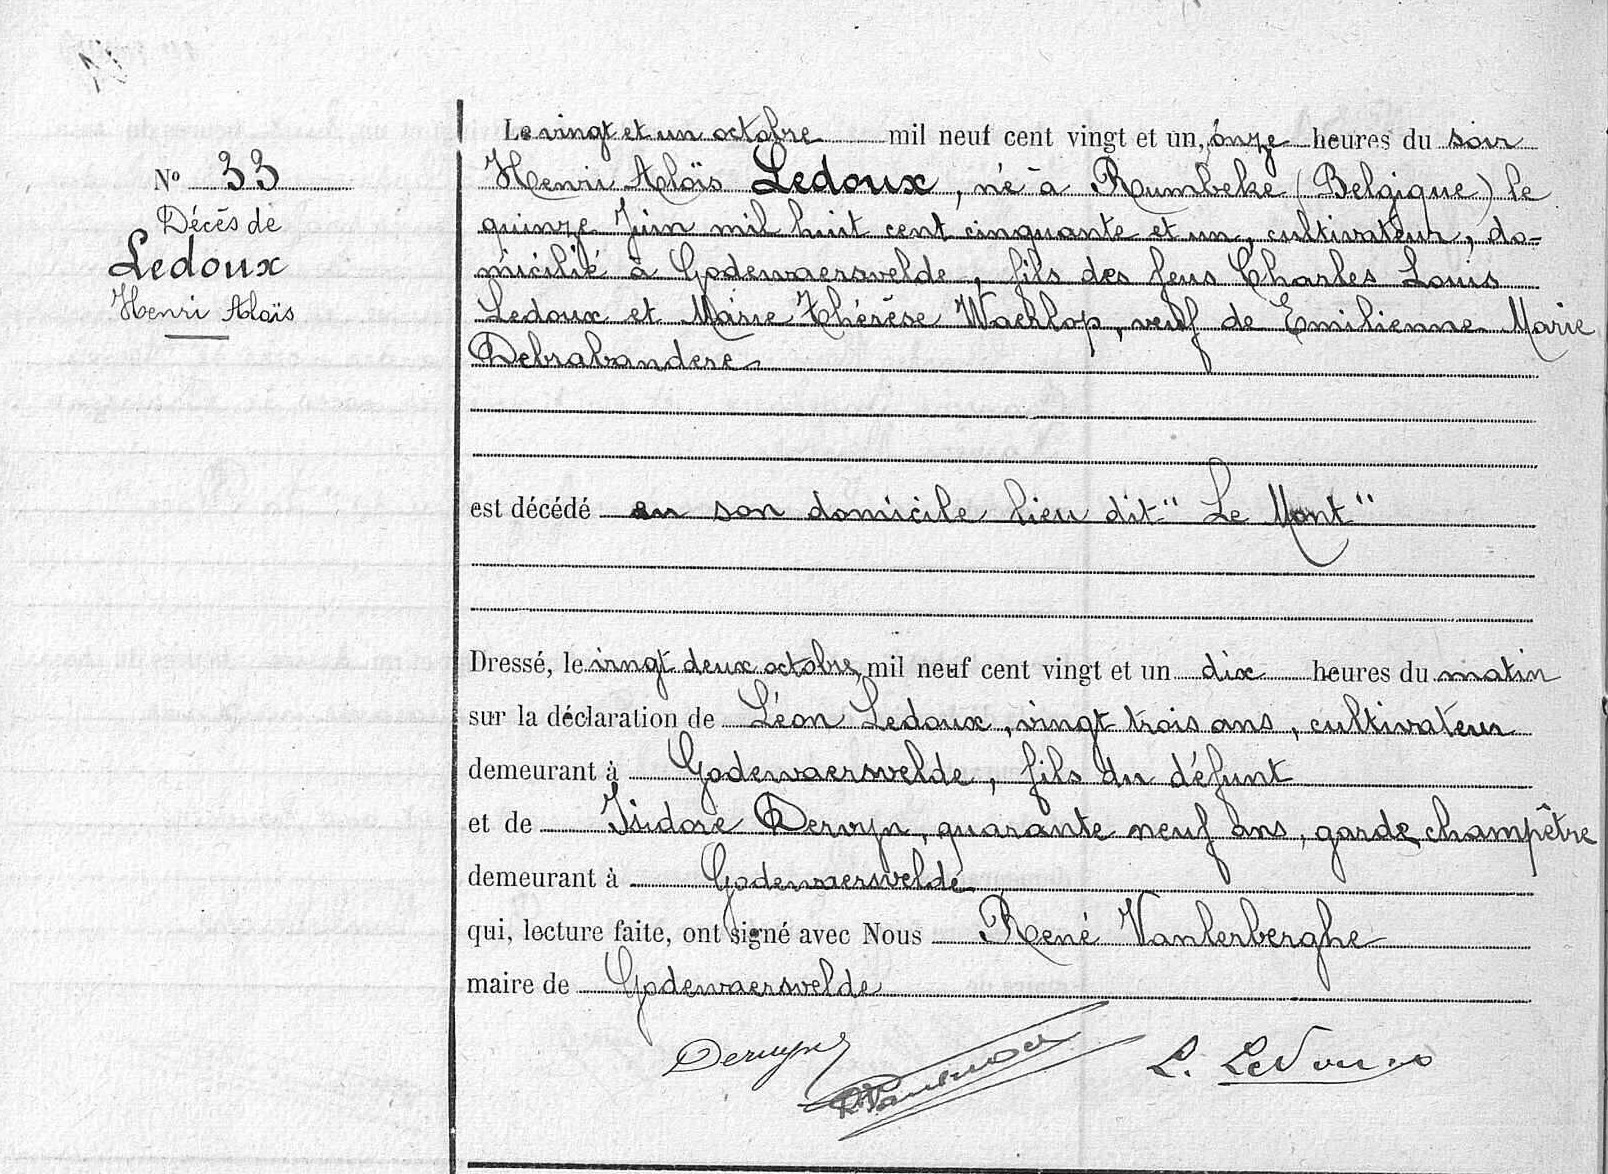 N° 33
Décès de
Ledoux
Henri Aloïs
Le vingt et un octobre mil neuf cent vingt et un, onze heures du soir
Henri Aloïs Ledoux, né à Rumbeke (Belgique) le
quinze Juin mil huit cent cinquante et un, cultivateur, do-
micilié à Godewaersvelde, fils des feus Charles Louis
Ledoux et Marie Thérèse Waehlop, veuf de Emilienne Marie
Debrabandere
est décédé en son domicile lieu dit "Le Mont"
Dressé, le vingt deux octobre mil neuf cent vingt et un dix heures du matin
sur la déclaration de Léon Ledoux, vingt trois ans, cultivateur
demeurant à Godewaersvelde, fils du défunt
et de Isidore Dervyn, quarante neuf ans, garde champêtre
demeurant à Godewaersvelde
qui, lecture faite, ont signé avec Nous René Vanlerberghe
maire de Godewaersvelde
Dervyn
L. Ledoux